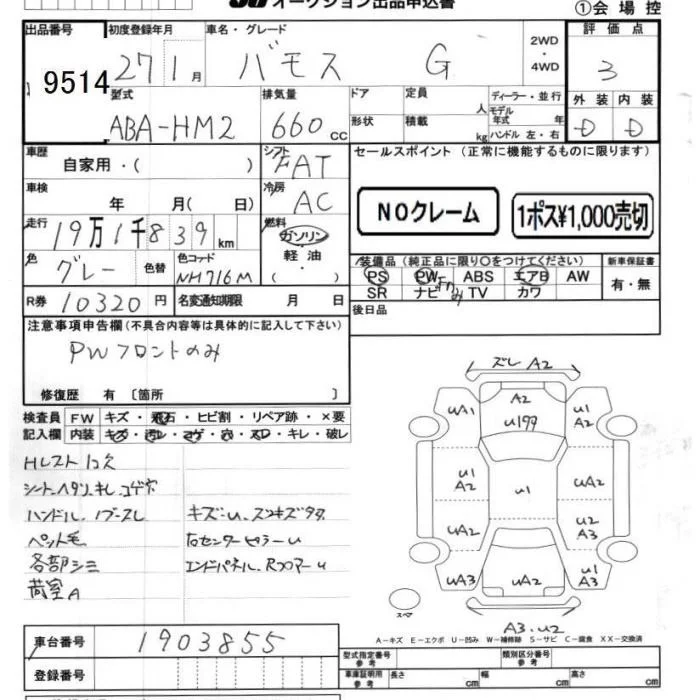 オークション出品申込書
①会場控
出品番号 初度登録年月 車名・グレード 評価点
9514 27 1月 バモス G 2WD・4WD 3
型式 排気量 ドア 定員 ディーラー・並行 外装 内装
ABA-HM2 660cc 形状 積載 人 kg モデル年式 年 ハンドル 左・右 D D
車歴 シフト セールスポイント(正常に機能するものに限ります)
自家用・( ) FAT
車検 冷房 NOクレーム 1ポス¥1,000売切
年 月( 日) AC
走行 燃料
19万1千839km ガソリン・軽油・( )
装備品(純正品に限り○をつけてください) 新車保証書
色 色替 色コード PS PW ABS エアB AW 有・無
グレー NH716M SR ナビ TV カワ
R券 10320円 名変通知期限 月 日 後日品
注意事項申告欄(不具合内容等は具体的に記入して下さい)
PWフロントのみ
修復歴 有〔箇所 〕
検査員 FW キズ・飛石・ヒビ割・リペア跡・×要
記入欄 内装 キズ・汚レ・コゲ・穴・スレ・キレ・破レ
Hレスト1コ欠
シート、ヘタリ、キレ、コゲ穴
ハンドル、ノブ、スレ キズ・U、スリキズ多々
ペット毛 右センターピラーU
各部シミ エンドパネル、RフロアーU
荷室A
ズレ A2
A2
U199
UA1 U1 A2
U1 A2 U1 UA2
UA2 U2 A3
UA3 UA2 U1 A3
スペア
A3・U2
A-キズ E-エクボ U-凹み W-補修跡 S-サビ C-腐食 XX-交換済
車台番号 1903855
型式指定番号 参考 類別区分番号 参考
登録番号 車庫証明用 参考 長さ cm 幅 cm 高さ cm